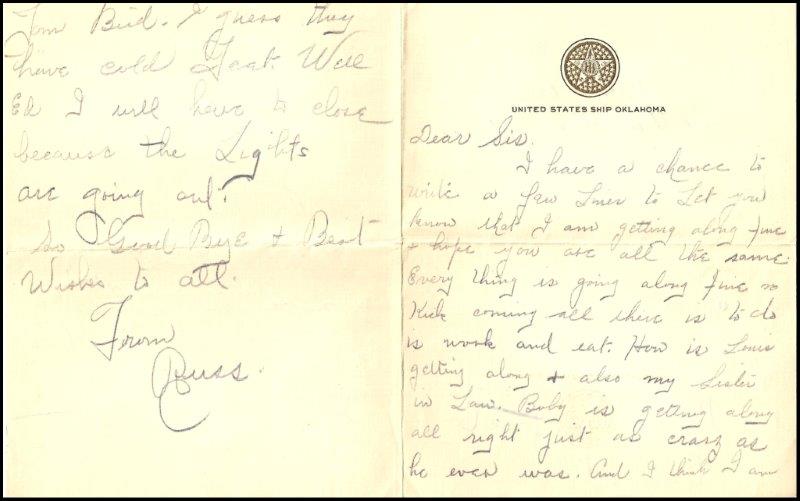 Tom Bird. I guess they
have cold feet. Well
Ed I will have to close
because the Lights
are going out.
So Good Bye & Best
Wishes to all.
From
Russ.
UNITED STATES SHIP OKLAHOMA
Dear Sis.
I have a chance to
write a few lines to Let you
know that I am getting along fine
& hope you are all the same.
Every thing is going along fine no
Kick coming all there is to do
is work and eat. How is Louis
getting along & also my Sister
in Law. Boby is getting along
all right just as crazy as
he ever was. And I think I am